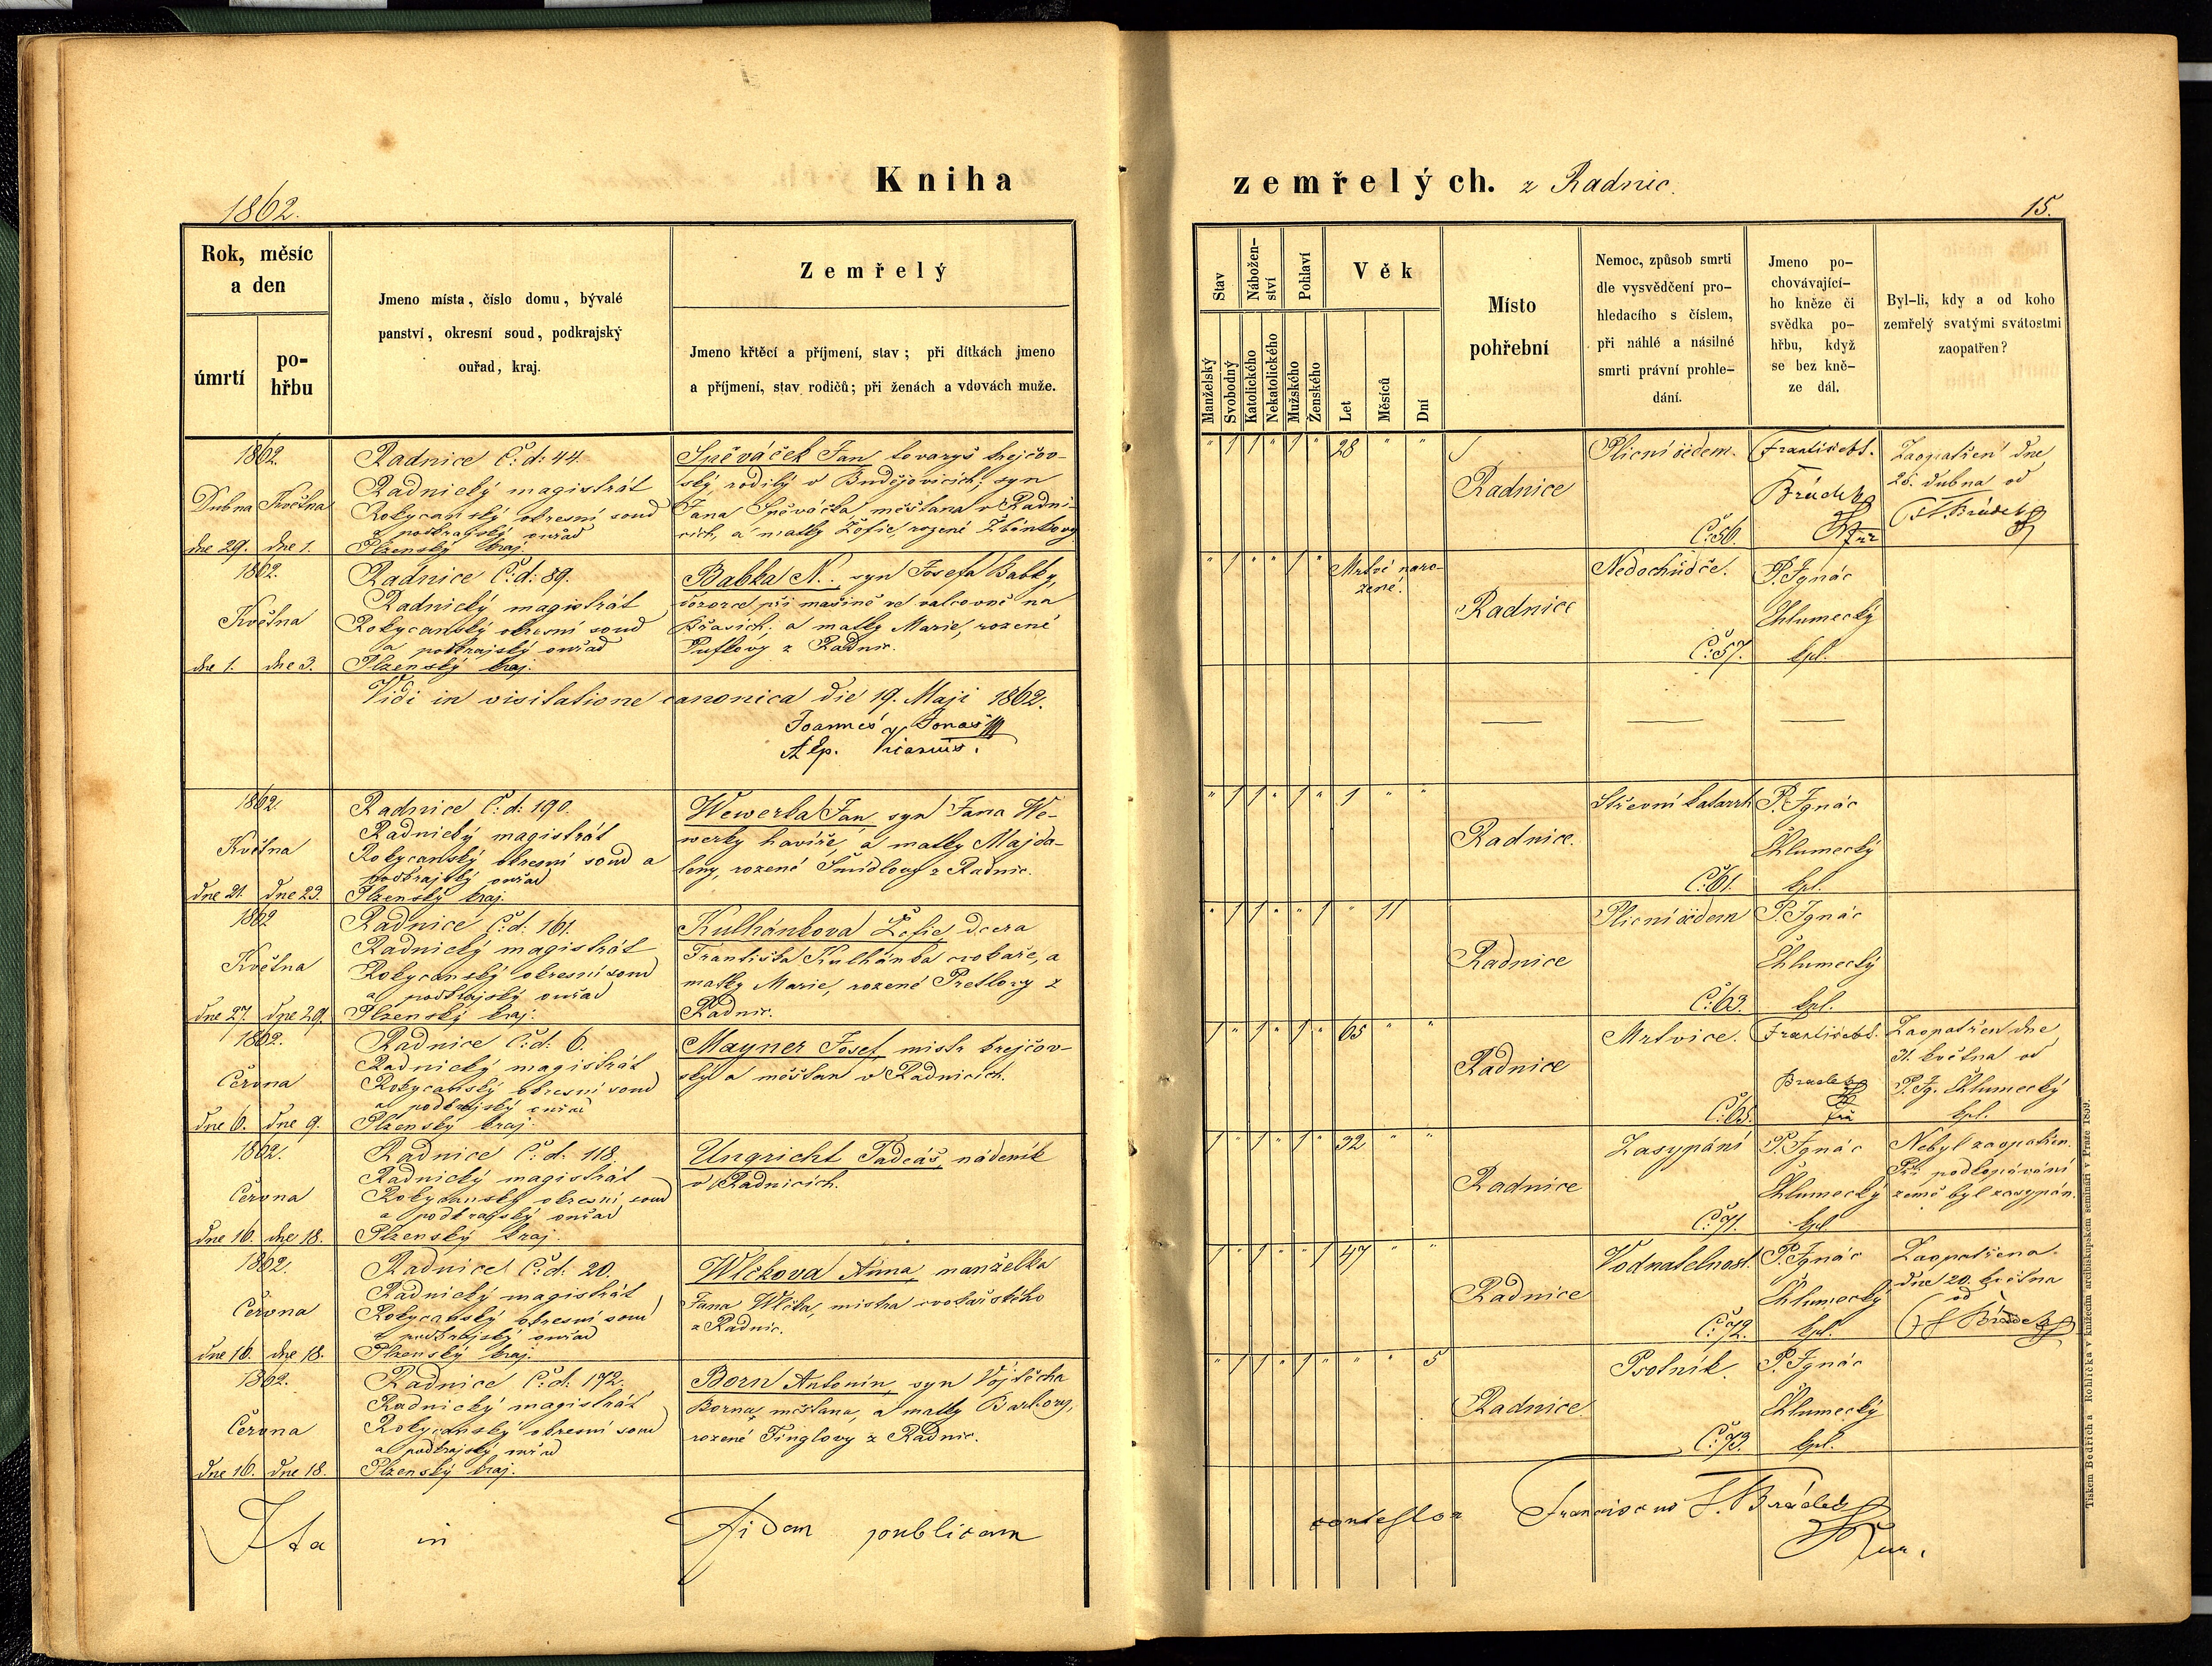 Kniha
zemřelých. z Radnic.
1862.
15.
Rok, měsíc
a den
úmrtí
po-
hřbu
Jmeno místa, číslo domu, bývalé
panství, okresní soud, podkrajský
ouřad, kraj.
Zemřelý
Jmeno křtěcí a příjmení, stav; při dítkách jmeno
a příjmení, stav rodičů; při ženách a vdovách muže.
Stav
Nábožen-
ství
Pohlaví
Věk
Manželský
Svobodný
Katolického
Nekatolického
Mužského
Ženského
Let
Měsíců
Dní
Místo
pohřební
Nemoc, způsob smrti
dle vysvědčení pro-
hledacího s číslem,
při náhlé a násilné
smrti právní prohle-
dání.
Jmeno po-
chovávající-
ho kněze či
svědka po-
hřbu, když
se bez kně-
ze dál.
Byl-li, kdy a od koho
zemřelý svatými svátostmi
zaopatřen?
1862.
Dubna Května
dne 29. dne 1.
Radnice Č: d: 44.
Radnický magistrát
Rokycanský okresní soud
a podkrajský ouřad
Plzenský kraj.
Spěváček Jan tovaryš krejčov-
ský rodilý v Budějovicích, syn
Jana Spěváčka měšťana v Radni-
cích, a matky Žofie, rozené
" 1 1 " 1 " 28 " "
Radnice
Plicní öedem.
Č: 56.
Františekt.
Brádek
Zaopatřen dne
28. dubna od
Fr. Brádek
1862.
Května
dne 1. dne 3.
Radnice Č: d: 89.
Radnický magistrát
Rokycanský okresní soud
a podkrajský ouřad
Plzenský kraj.
Babka N. syn Josefa Babky,
dozorce při mašině ve valcovně na
Břasích, a matky Marie, rozené
Puflovy z Radnic.
" 1 1 " 1 " Mrtvě naro-
zené.
Radnice
Nedochůdče.
Č: 57.
P. Ignác
Chlumecký
kpl.
Vidi in visitatione canonica die 19. Maji 1862.
Joannes Jonaš
Vicarius.
1862.
Května
dne 21. dne 23.
Radnice Č: d: 190.
Radnický magistrát
Rokycanský okresní soud a
podkrajský ouřad
Plzenský kraj.
Wewerka Jan, syn Jana We-
werky havíře, a matky Majda-
leny, rozené Šmídlovy z Radnic.
" 1 1 " 1 " 1 " "
Radnice.
Střevní katarrh
Č: 61.
P. Ignác
Chlumecký
kpl.
1862
Května
dne 27. dne 29.
Radnice Č: d: 161.
Radnický magistrát
Rokycanský okresní soud
a podkrajský ouřad
Plzenský kraj.
Kulhánkova Žofie dcera
Františka Kulhánka cvokaře, a
matky Marie, rozené Pretlovy z
Radnic.
" 1 1 " " 1 " 11
Radnice
Plicní öedem
Č: 63.
P. Ignác
Chlumecký
kpl.
1862.
Června
dne 6. dne 9.
Radnice Č: d: 6.
Radnický magistrát
Rokycanský okresní soud
a podkrajský ouřad
Plzenský kraj.
Mayner Josef, mistr krejčov-
ský a měšťan v Radnicích.
1 " 1 " 1 " 65 " "
Radnice
Mrtvice.
Č: 65.
Františekt.
Bradek
Zaopatřen dne
31. května od
P. Ig. Chlumecký
kpl.
1862.
Června
dne 16. dne 18.
Radnice Č: d: 118.
Radnický magistrát
Rokycanský okresní soud
a podkrajský ouřad
Plzenský kraj.
Ungricht Tadeáš, nádeník
v Radnicích.
1 " 1 " 1 " 32 " "
Radnice
Zasypání
Č: 71.
P. Ignác
Chlumecký
kpl
Nebyl zaopatřen.
Při podkopávání
země byl zasypán.
1862.
Června
dne 16. dne 18.
Radnice Č: d: 20.
Radnický magistrát
Rokycanský okresní soud
a podkrajský ouřad
Plzenský kraj.
Wlčkova Anna, manželka
Jana Wlčka, mistra cvokařského
z Radnic.
1 " 1 " " 1 47 " "
Radnice
Vodnatelnost.
Č: 72.
P. Ignác
Chlumecký
kpl.
Zaopatřena
dne 20. května
od
Brádek
1862.
Června
dne 16. dne 18.
Radnice Č: d: 172.
Radnický magistrát
Rokycanský okresní soud
a podkrajský ouřad
Plzenský kraj.
Born Antonín, syn Vojtěcha
Borna, měšťana, a matky Barbory,
rozené Finglovy z Radnic.
" 1 1 " 1 " " " 5
Radnice
Psotník.
Č: 73.
P. Ignác
Chlumecký
kpl.
Ita in fidem publicam
contestor Franciscus T. Brádek
Tiskem Bedřicha Rohlíčka v knížecím arcibiskupském semináři v Praze 1859.